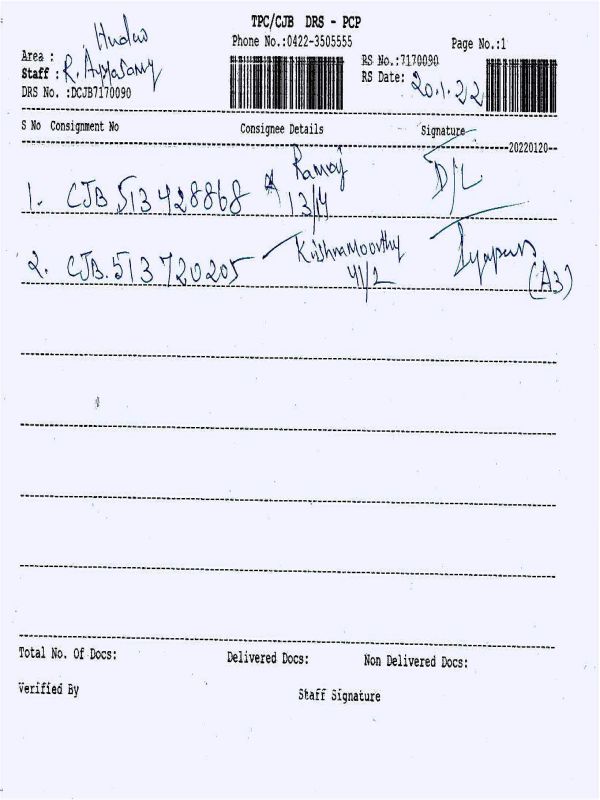 TPC/CJB DRS - PCP
Phone No.:0422-3505555
Page No.:1
Area :
Staff : R. Ayyasamy
DRS No. :DCJB7170090
RS No.:7170090
RS Date: 20.1.22
S No Consignment No Consignee Details Signature
20220120
1. CJB 513428868 Ramraj D/L
13/14
2. CJB.513720205 Krishnamoorthy
41/2 (A3)
Total No. Of Docs: Delivered Docs: Non Delivered Docs:
Verified By Staff Signature